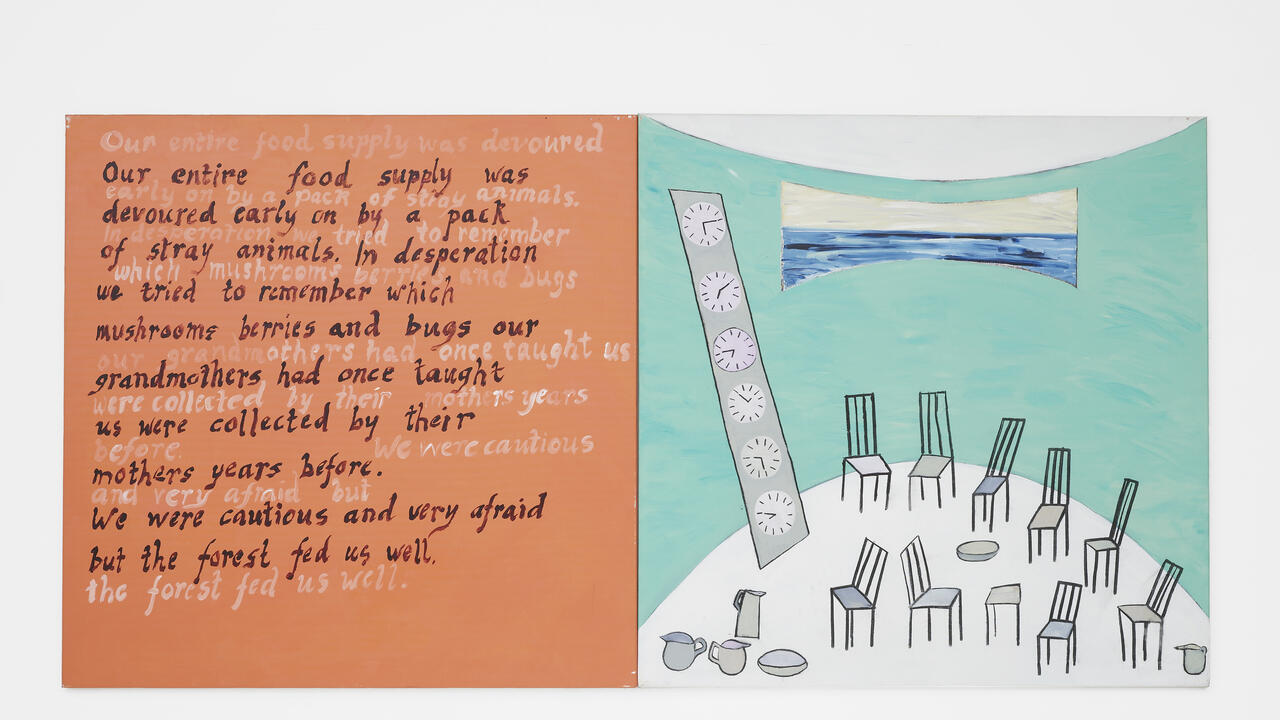 Our entire food supply was devoured
Our entire food supply was
early on by a pack of stray animals.
devoured early on by a pack
In desperation we tried to remember
of stray animals. In desperation
which mushrooms berries and bugs
we tried to remember which
mushrooms berries and bugs our
our grandmothers had once taught us
grandmothers had once taught
were collected by their mothers years
us were collected by their
before. We were cautious
mothers years before.
and very afraid but
We were cautious and very afraid
but the forest fed us well.
the forest fed us well.